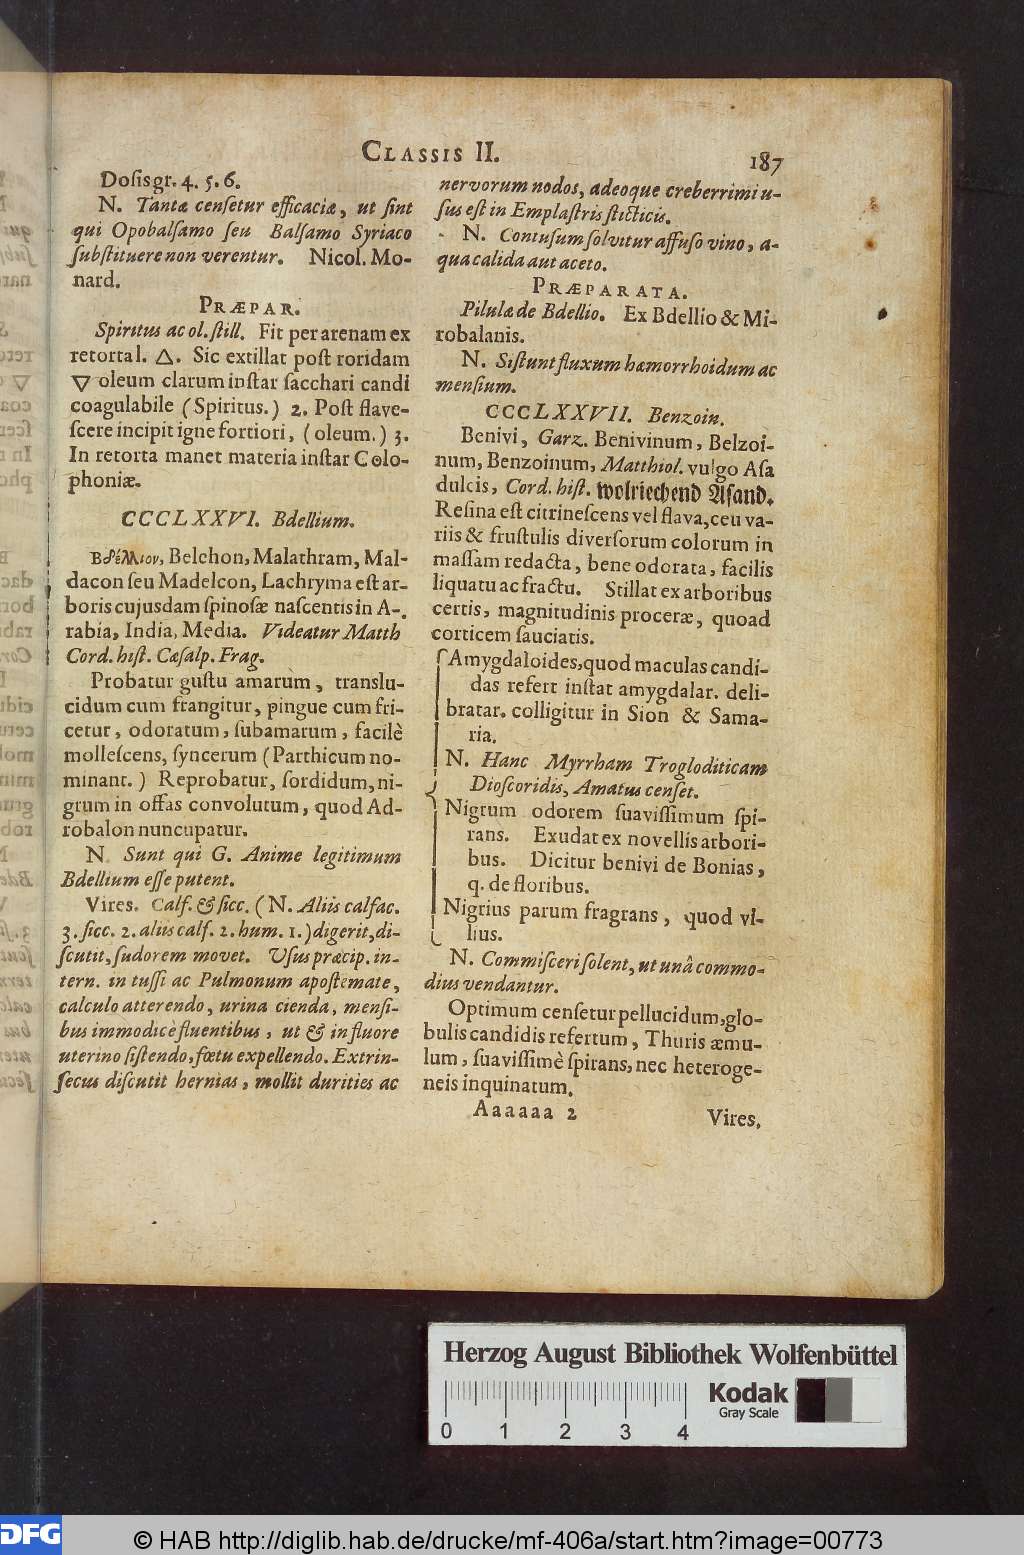 CLASSIS II.
187
Dosis gr. 4. 5. 6.
N. Tantæ censetur efficaciæ, ut sint
qui Opobalsamo seu Balsamo Syriaco
substituere non verentur. Nicol. Mo-
nard.
PRÆPAR.
Spiritus ac ol. still. Fit per arenam ex
retorta l. 🜂. Sic extillat post roridam
🜄 oleum clarum instar sacchari candi
coagulabile (Spiritus.) 2. Post flave-
scere incipit igne fortiori, (oleum.) 3.
In retorta manet materia instar Colo-
phoniæ.
CCCLXXVI. Bdellium.
Βδέλλιον, Belchon, Malathram, Mal-
dacon seu Madelcon, Lachryma est ar-
boris cujusdam spinosæ nascentis in A-
rabia, India, Media. Videatur Matth
Cord. hist. Cæsalp. Frag.
Probatur gustu amarum, translu-
cidum cum frangitur, pingue cum fri-
cetur, odoratum, subamarum, facilè
mollescens, syncerum (Parthicum no-
minant.) Reprobatur, sordidum, ni-
grum in offas convolutum, quod Ad-
robalon nuncupatur.
N. Sunt qui G. Anime legitimum
Bdellium esse putent.
Vires. Calf. & sicc. (N. Aliis calfac.
3. sicc. 2. aliis calf. 2. hum. 1.) digerit, di-
scutit, sudorem movet. Usus præcip. in-
tern. in tussi ac Pulmonum apostemate,
calculo atterendo, urina cienda, mensi-
bus immodicè fluentibus, ut & in fluore
uterino sistendo, fœtu expellendo. Extrin-
secus discutit hernias, mollit durities ac
nervorum nodos, adeoque creberrimi u-
sus est in Emplastris sticticis.
N. Contusum solvitur affuso vino, a-
qua calida aut aceto.
PRÆPARATA.
Pilulæ de Bdellio. Ex Bdellio & Mi-
robalanis.
N. Sistunt fluxum hæmorrhoidum ac
mensium.
CCCLXXVII. Benzoin.
Benivi, Garz. Benivinum, Belzoi-
num, Benzoinum, Matthiol. vulgo Asa
dulcis, Cord. hist. wolriechend Asand.
Resina est citrinescens vel flava, ceu va-
riis & frustulis diversorum colorum in
massam redacta, bene odorata, facilis
liquatu ac fractu. Stillat ex arboribus
certis, magnitudinis proceræ, quoad
corticem sauciatis.
Amygdaloides, quod maculas candi-
das refert instat amygdalar. deli-
bratar. colligitur in Sion & Sama-
ria.
N. Hanc Myrrham Trogloditicam
Dioscoridis, Amatus censet.
Nigrum odorem suavissimum spi-
rans. Exudat ex novellis arbori-
bus. Dicitur benivi de Bonias,
q. de floribus.
Nigrius parum fragrans, quod vi-
lius.
N. Commisceri solent, ut unâ commo-
dius vendantur.
Optimum censetur pellucidum, glo-
bulis candidis refertum, Thuris æmu-
lum, suavissimè spirans, nec heteroge-
neis inquinatum.
Aaaaaa 2
Vires.
Herzog August Bibliothek Wolfenbüttel
Kodak
Gray Scale
0 1 2 3 4
DFG
© HAB http://diglib.hab.de/drucke/mf-406a/start.htm?image=00773